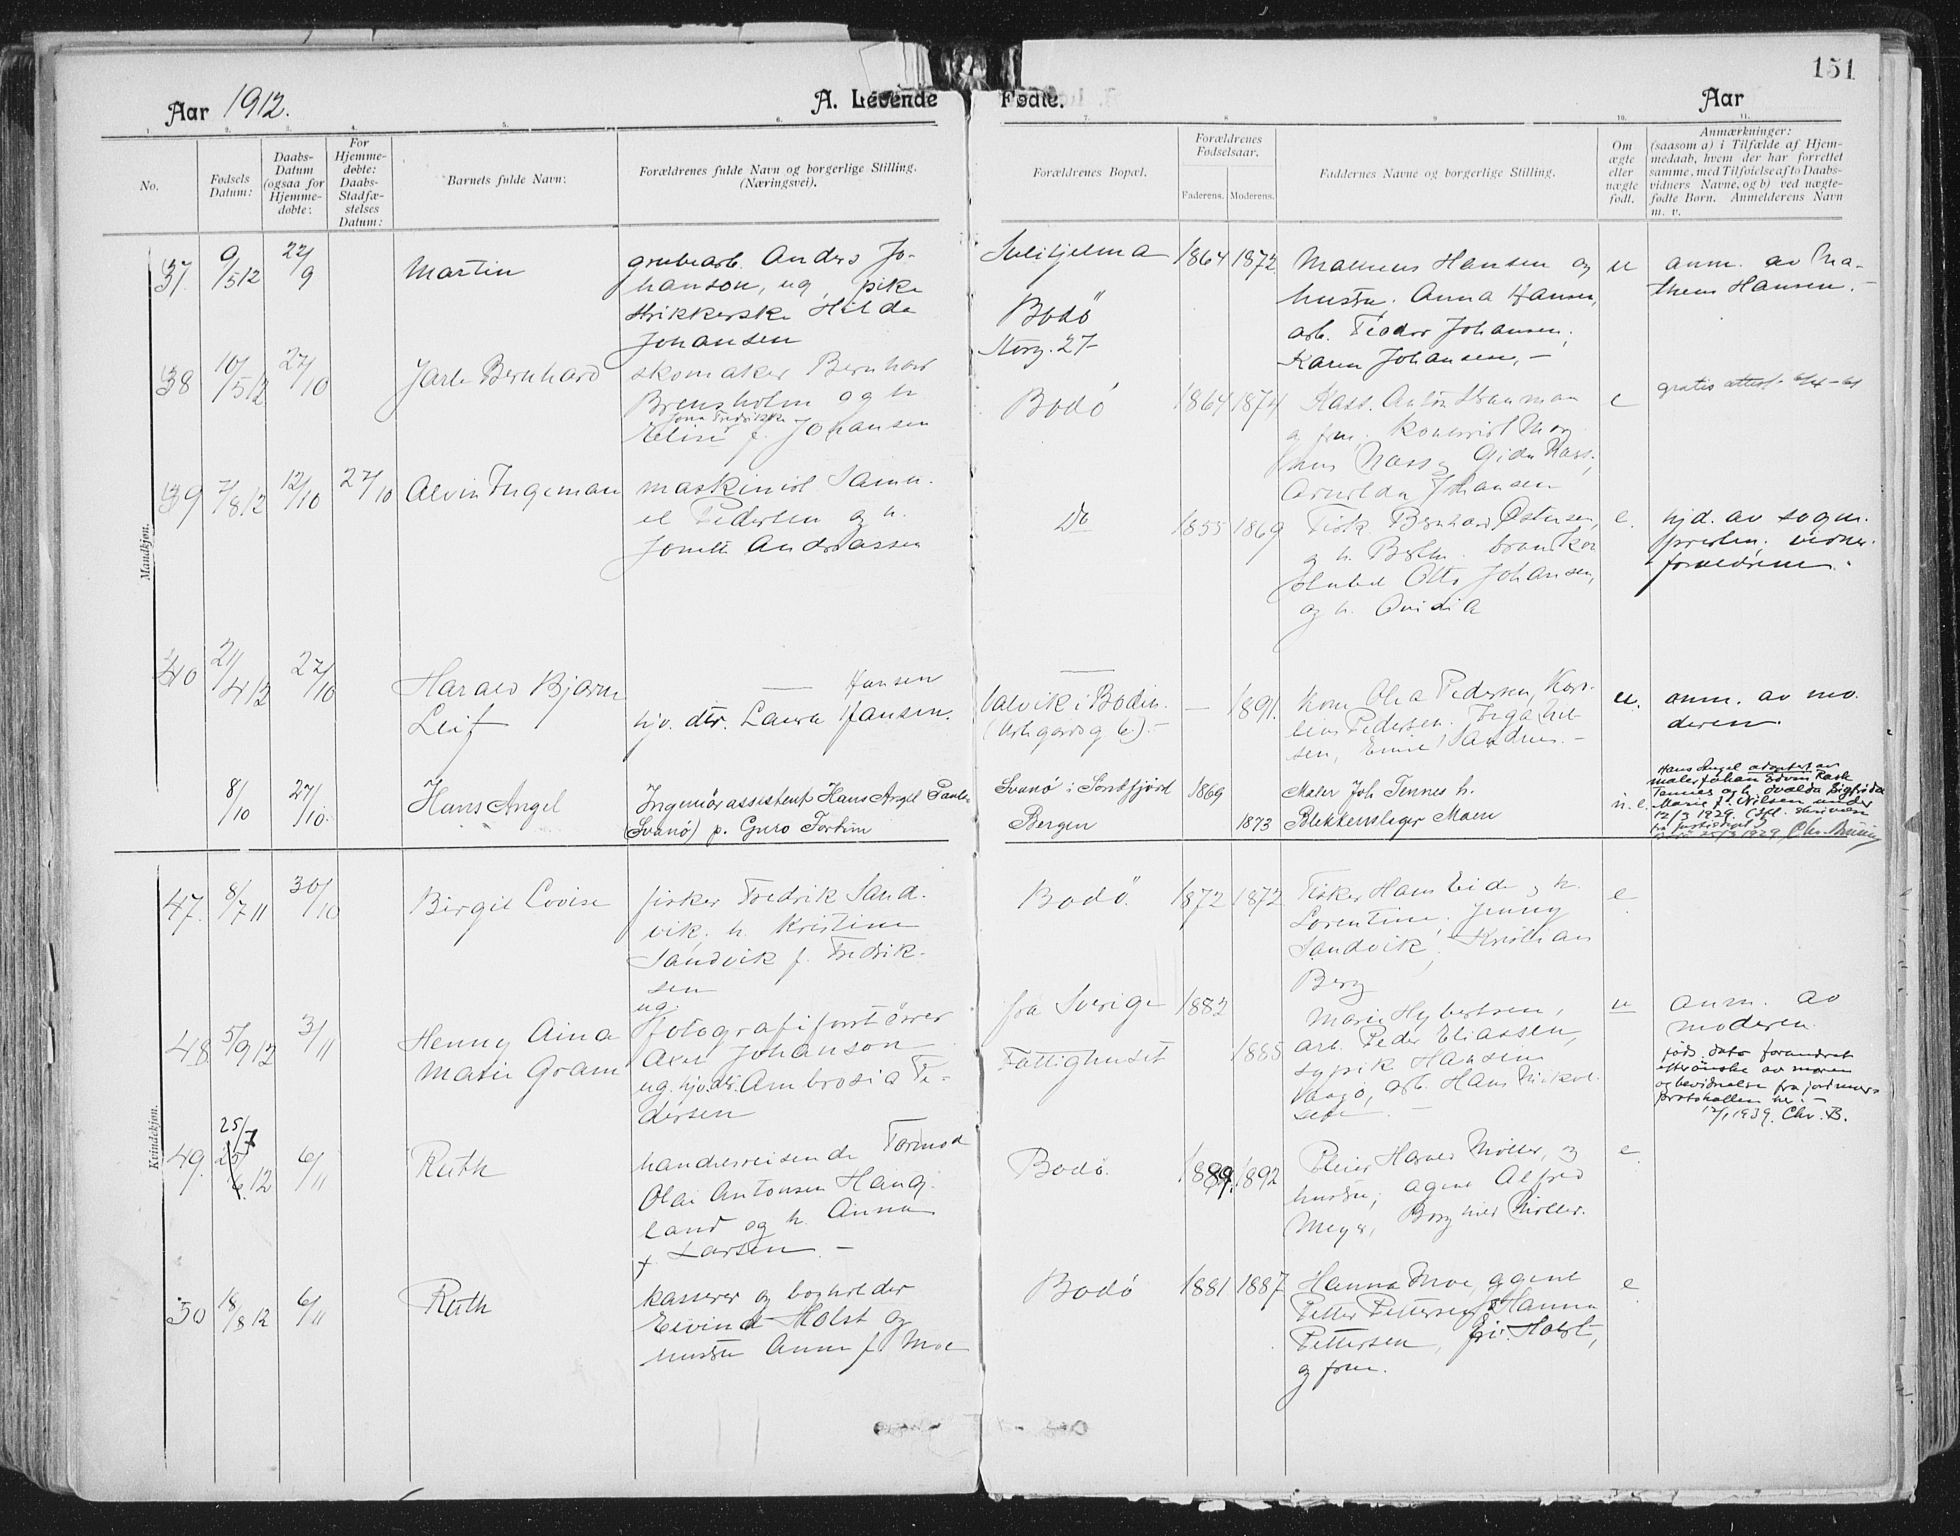 151
Aar 1912.
A. Levende
Fødte.
Aar
1.
2.
3.
4.
5.
6.
7.
8
9
10.
11.
No.
Fødsels
Datum:
Daabs-
Datum
(ogsaa for
Hjemme-
døbte:
For
Hjemme-
døbte:
Daabs-
Stadfæ-
stelses
Datum:
Barnets fulde Navn:
Forældrenes fulde Navn og borgerlige Stilling.
(Næringsvei).
Forældrenes Bopæl.
Forældrenes
Fødselsaar.
Faderens.
Moderens.
Faddernes Navne og borgerlige Stilling.
Om
ægte
eller
uægte
født.
Anmærkninger:
(saasom a) i Tilfælde af Hjem-
medaab, hvem der har forrettet
samme, med Tilføielse af to Daabs-
vidners Navne, og b) ved uægte-
fødte Børn. Anmelderens Navn
m. v.
Mandkjøn.
37.
9/5 12
22/9
Martin
grubearb. Anders Jo-
hanson, ug. pike
strikkerske Hilda
Johansen
Sulitjelma
Bodö
Storg. 27
1864
1872
Matheus Hansen og
hustru. Anna Hansen,
arb. Teodor Johansen,
Karen Johansen. –
u
anm. av Ma-
theus Hansen. –
38
10/5 12
27/10
Jarle Bernhard
skomaker Bernhar
Brensholm og h.
Jona Fredrikke
Elise f. Johansen
Bodö
1864
1874
Kass. Anton Strauman
og frue, Mag
nus Nass, Gida Nass,
Arnolda Johansen
e
gratis attest
39
7/8 12
12/10
27/10
Alvin Ingeman
maskinist Samu-
el Pedersen og h.
Jonette Andreassen
Do
1855
1869
Fisk. Bernhard Østensen,
og h.
Otto Johansen,
og h. Ovidia
e.
hjd. av sogne-
presten. vidner
forældrene.
40
21/4 12
27/10
Harald Bjarne
Leif
— Hansen
hjv. dtr. Laura Jansen.
—
Valvik i Bodin.
—
1891.
kone Olea Pedersen, Kor-
Pedersen. Inga Niel
sen, Emil Sandnes. –
u.
anm. av mo-
deren.
8/10
27/10.
Hans Angel
Ingeniørassistent Hans Angel Paul
(Svanø) p. Guro Fortun
Svanø i Søndfjord
Bergen
1869
1873
Maler Joh Tennes h.
Blikkenslager Moen
u. e.
Hans Angel adoptert av
maler Johan Edvin Rask
Tennes og h. Ovalda Sigfrida
Marie f. Nilsen under
12/3 1929 (Skr. skrivelse
fra
25/3 1929 Chr.
Kvindekjøn.
47.
8/7 11
30/10
Birgit Lovise
fisker Fredrik Sand-
vik. h. Kristine
Sandvik f. Fredrik-
sen
Bodö.
1872
1872
Fisker Hans Eide og h.
Lorentine. Jenny
Sandvik, Kristian
Berg
e
48
5/9 12
3/11
Henny Aina
Marie Gram
ug.
fotografiforstörrer
Axel Johanson
ug. hjv.dtr. Ambrosia Pe-
dersen
fra Sverige
Fattighuset
1882
1888
Marie Hybertsen,
arb. Peder Eliassen,
sypik Hansine
Vaagø, arb. Hans Mikal-
sen. –
u
anm. av
moderen.
föds. dato forandret
efter ønske av moren
og bevidnelse fra jordmors-
protokollen her. –
12/1 1939. Chr. B.
49.
25/7
25/6.12
6/11
Ruth
handelsreisende Tormod
Olai Antonsen Haug-
land og h. Anna
f. Larsen. –
Bodö.
1889.
1892
Harald Møller, og
hustru, agent Alfred
Meyer, Borghild Møller.
e
50
18/8 12
6/11
Ruth
kasserer og bogholder
Eivind Holst og
hustru Anna f. Moe
Bodö
1881
1887
Hanna Moe, agent
Petter Pettersen, Hanna
Pettersen, Eiv. Holst,
og frue.
e